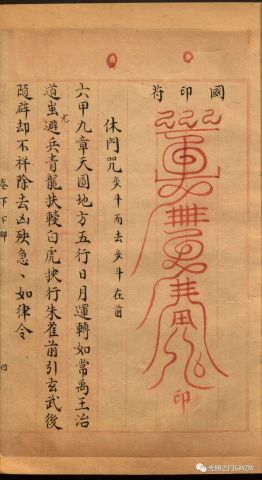 國印符
印
休門咒 斗而去 斗在前
六甲九章天圓地方五行日月運轉如常禹王治
道蚩尤避兵青龍扶轂白虎挾行朱雀前引玄武後
隨辟却不祥除去凶殃急、如律令
卷下下
四
光明之门GMZM